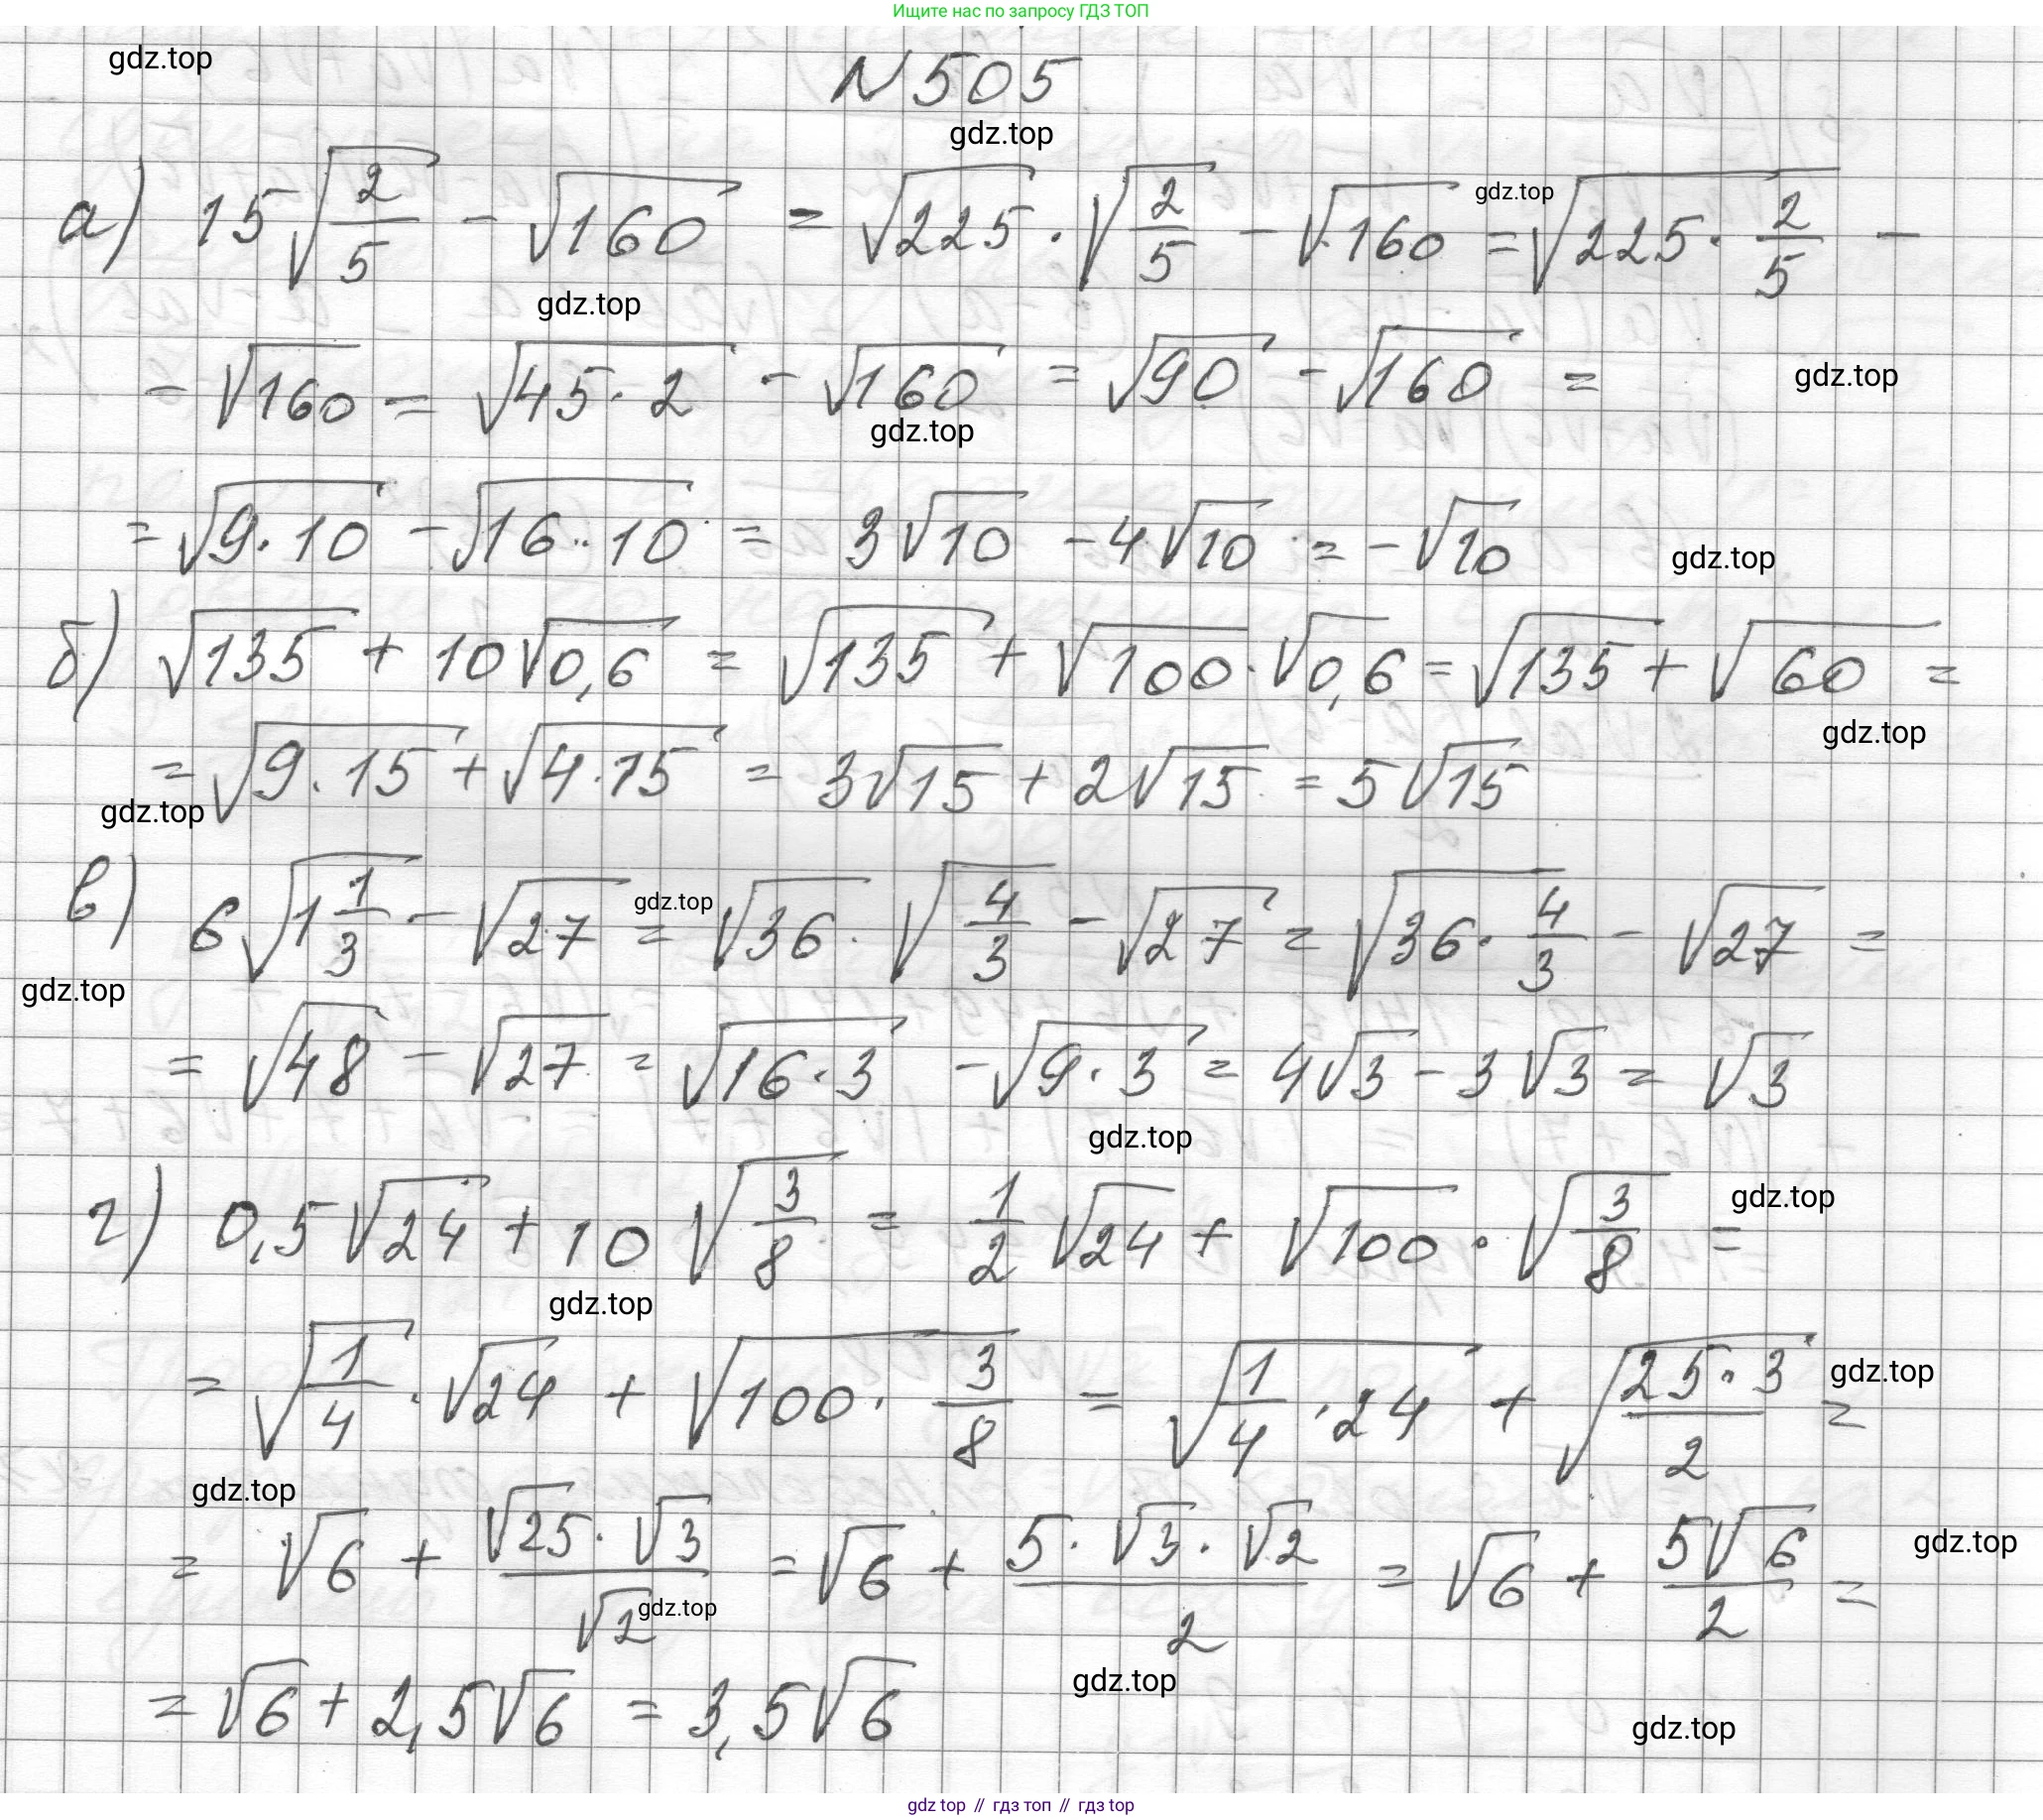 Ищите нас по запросу ГДЗ ТОП
gdz.top
N 505
gdz.top
а) 15√(2/5) - √160 = √225 · √(2/5) - √160 = √(225 · 2/5) -
gdz.top
gdz.top
- √160 = √(45 · 2) - √160 = √90 - √160 =
gdz.top
gdz.top
= √(9 · 10) - √(16 · 10) = 3√10 - 4√10 = -√10
gdz.top
б) √135 + 10√0,6 = √135 + √100 · √0,6 = √135 + √60 =
gdz.top
= √(9 · 15) + √(4 · 15) = 3√15 + 2√15 = 5√15
gdz.top
в) 6√(1 1/3) - √27 = √36 · √(4/3) - √27 = √(36 · 4/3) - √27 =
gdz.top
gdz.top
= √48 - √27 = √(16 · 3) - √(9 · 3) = 4√3 - 3√3 = √3
gdz.top
г) 0,5√24 + 10√(3/8) = 1/2 √24 + √100 · √(3/8) =
gdz.top
gdz.top
= √(1/4) · √24 + √(100 · 3/8) = √(1/4 · 24) + √((25 · 3)/2) =
gdz.top
gdz.top
= √6 + (√25 · √3)/√2 = √6 + (5 · √3 · √2)/2 = √6 + (5√6)/2 =
gdz.top
gdz.top
= √6 + 2,5√6 = 3,5√6
gdz.top
gdz.top
gdz top // гдз топ // gdz top